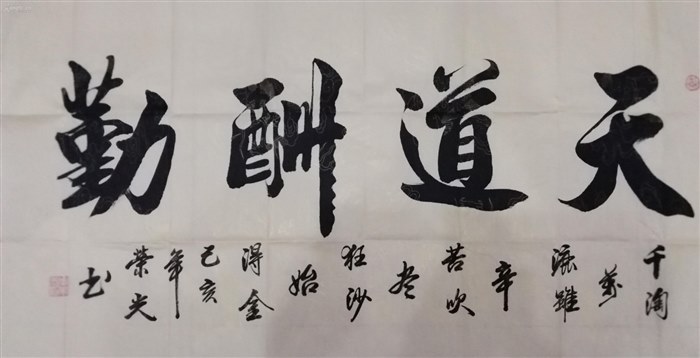 天道酬勤
千淘
萬
漉雖
辛
苦吹
尽
狂沙
始
得金
己亥
年
榮光
书